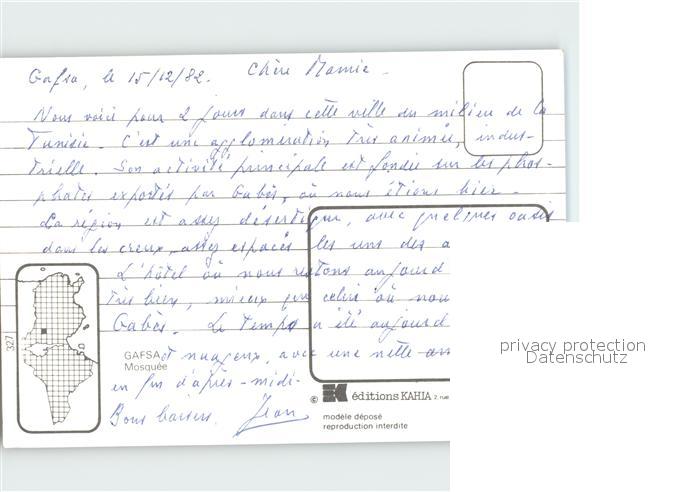 Gafsa, le 15/12/82. Chère Mamie -
Nous voici pour 2 jours dans cette ville du milieu de la
Tunisie. C'est une agglomération très animée, indus-
trielle. Son activité principale est fondée sur les phos-
phates exportés par Gabès, où nous étions hier -
La région est assez désertique, avec quelques oasis
dans les creux, assez espacés les uns des a
L'hôtel où nous restons aujourd
très bien, mieux que celui où nou
Gabès. Le temps a été aujourd
et nuageux, avec une nette
en fin d'après-midi.
Bons baisers. Jean
327
GAFSA
Mosquée
© éditions KAHIA 2, rue
modèle déposé
reproduction interdite
privacy protection
Datenschutz